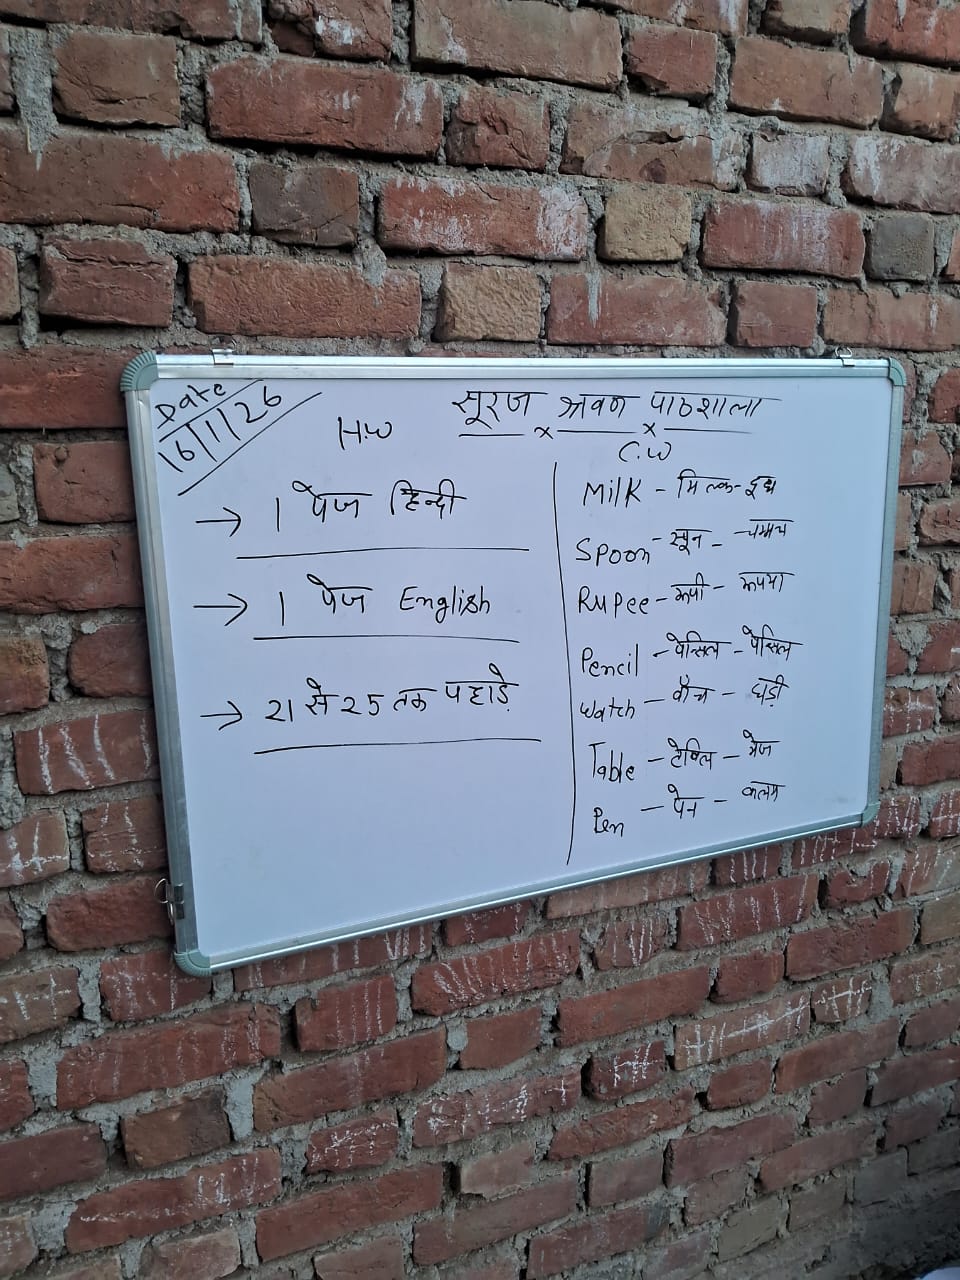 Date
16/1/26
सूरज श्रवण पाठशाला
H.W
→ 1 पेज हिन्दी
→ 1 पेज English
→ 21 से 25 तक पहाड़े
C.W
Milk - मिल्क - दूध
Spoon - स्पून - चम्मच
Rupee - रूपी - रूपया
Pencil - पेंसिल - पेंसिल
Watch - वॉच - घड़ी
Table - टेबिल - मेज
Pen - पेन - कलम